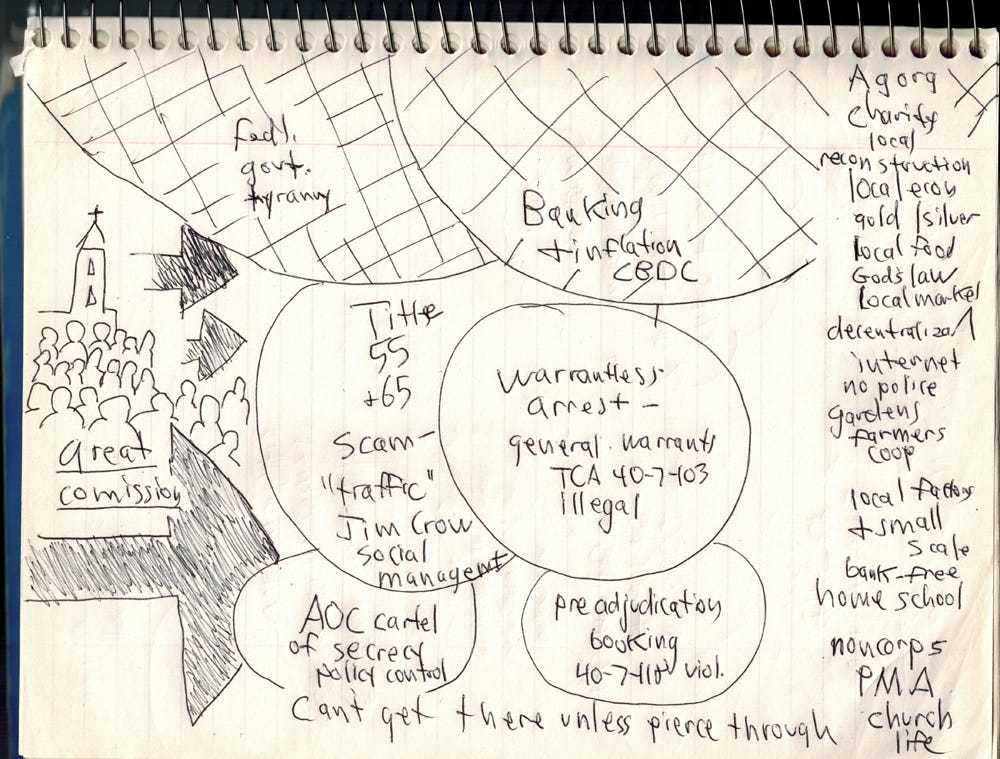 fedl.
govt.
tyranny
Banking
+inflation
CBDC
Title
55
+65
scam-
"traffic"
Jim Crow
social
management
warrantless
arrest -
general warrants
TCA 40-7-103
illegal
great
comission
AOC cartel
of secrecy
policy control
preadjudication
booking
viol.
Cant get there unless pierce through
Agora
charity
local
reconstruction
local econ
gold/silver
local food
Gods law
local market
internet
no police
gardens
farmers
coop
local factory
+small
scale
bank-free
home school
noncorps
PMA
church
life